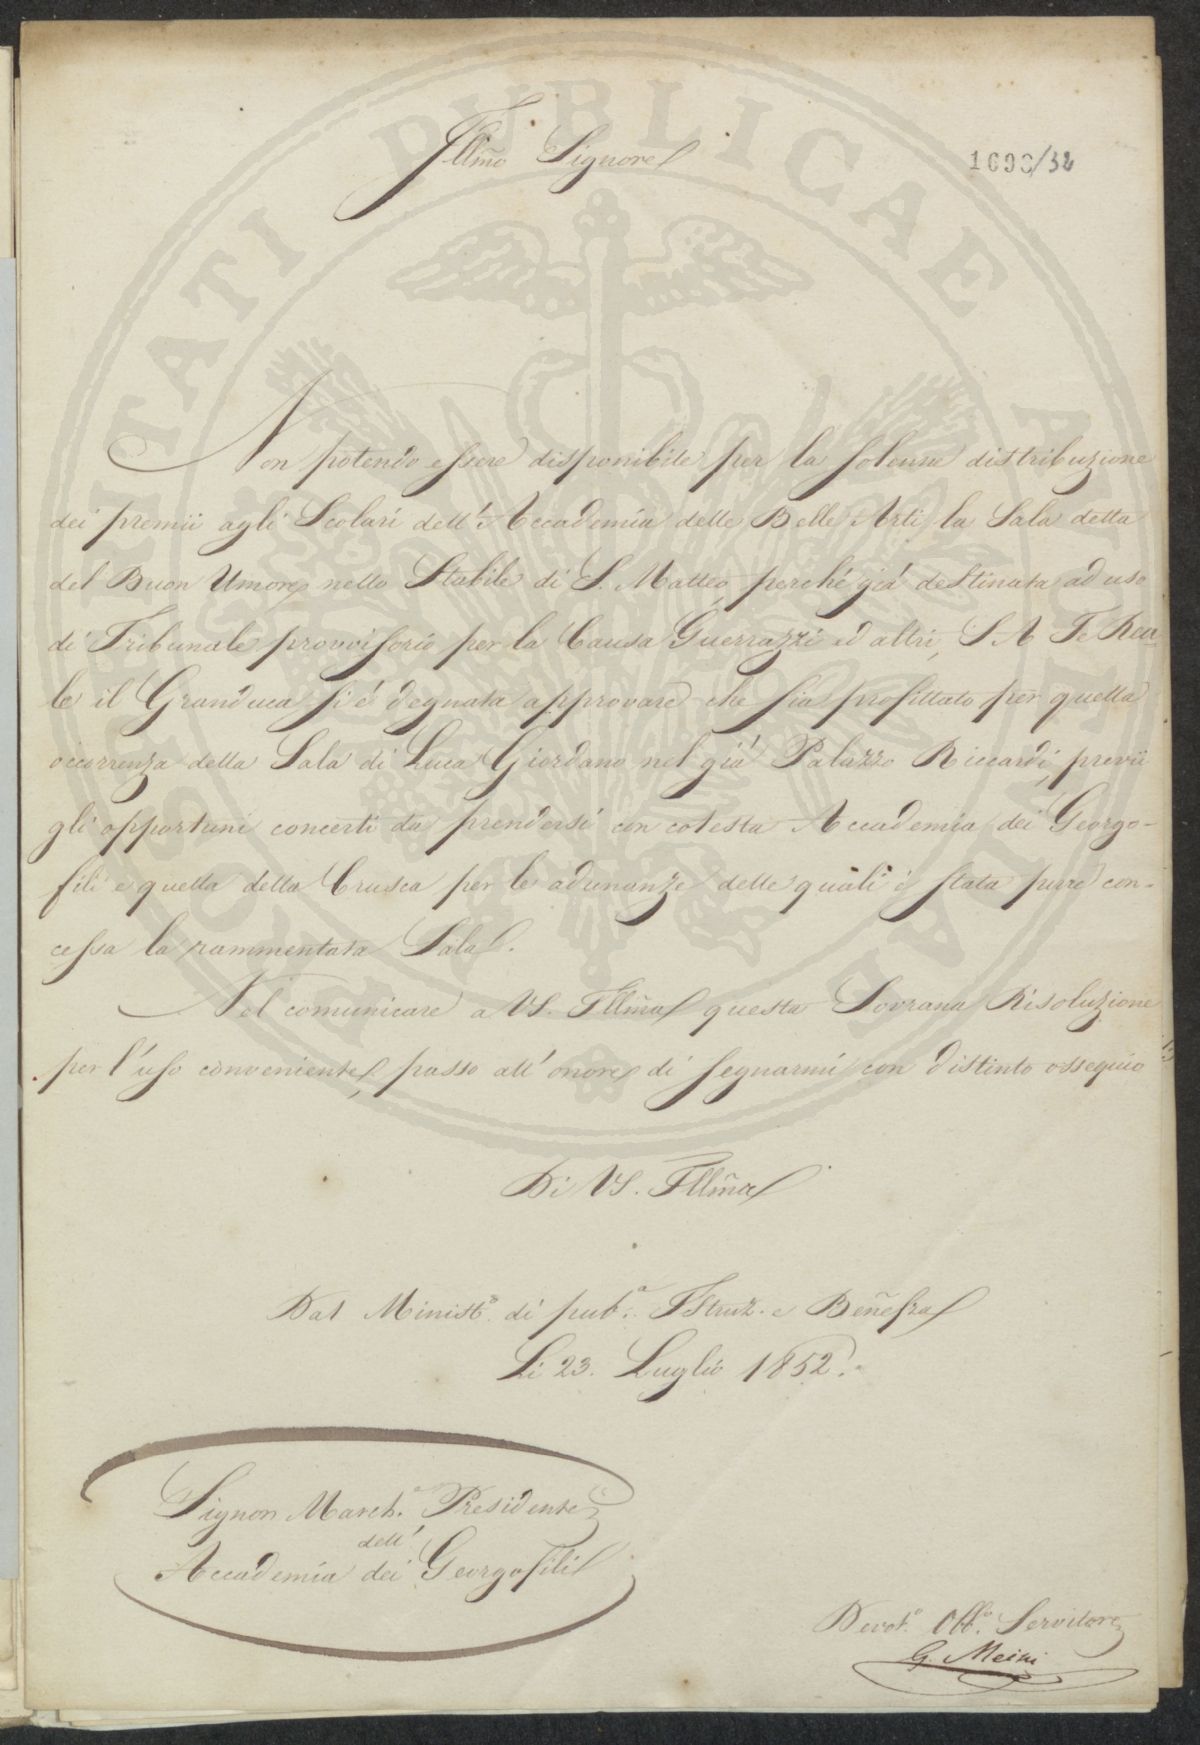 Illm̃o Signore
1693/32
Non potendo essere disponibile per la solenne distribuzione
dei premii agli Scolari dell'Accademia delle Belle Arti la Sala detta
del Buon Umore nello Stabile di S. Matteo, perchè già destinata ad uso
di Tribunale provvisorio per la Causa Guerrazzi ed altri, S A I e Rea-
le il Granduca si è degnata approvare che sia profittato per quella
occorrenza della Sala di Luca Giordano nel già Palazzo Riccardi, previi
gli opportuni concerti da prendersi con cotesta Accademia dei Georgo-
fili e quella della Crusca per le adunanze delle quali è stata pure con-
cessa la rammentata Sala.
Nel comunicare a VS. Illm̃a questa Sovrana Risoluzione
per l'uso conveniente, passo all'onore di segnarmi con distinto ossequio
Di VS. Illm̃a
Dal Minist.º di pub.ª Istruz. e Beñefza
Li 23. Luglio 1852.
Signor March.e Presidente
dell'
Accademia dei Georgofili
Devot.º Obb.º Servitore
G. Meini
PUBLICAE